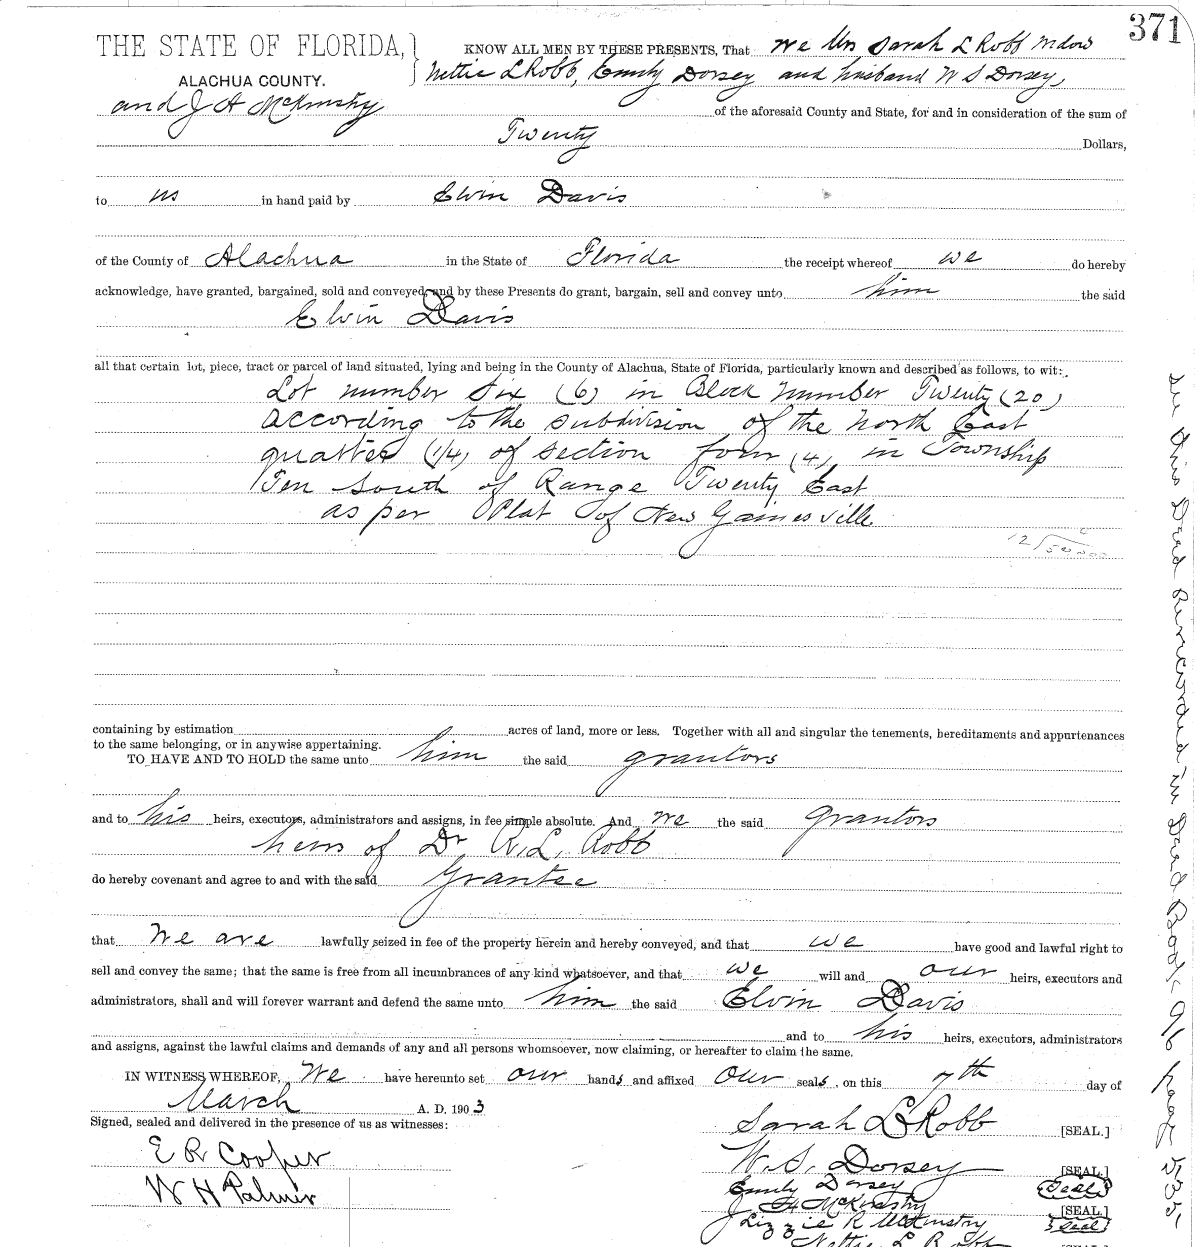 371
THE STATE OF FLORIDA,
ALACHUA COUNTY.
KNOW ALL MEN BY THESE PRESENTS, That We Mrs Sarah L Robb widow
Nettie L Robb, Emily Dorsey and husband W S Dorsey,
and J A McKinstry of the aforesaid County and State, for and in consideration of the sum of
Twenty Dollars,
to us in hand paid by Elvin Davis
of the County of Alachua in the State of Florida the receipt whereof we do hereby
acknowledge, have granted, bargained, sold and conveyed, and by these Presents do grant, bargain, sell and convey unto him the said
Elvin Davis
all that certain lot, piece, tract or parcel of land situated, lying and being in the County of Alachua, State of Florida, particularly known and described as follows, to wit:
Lot number Six (6) in Block number Twenty (20)
according to the subdivision of the North East
quarter (1/4) of section four (4) in Township
Ten South of Range Twenty East
as per Plat of New Gainesville
containing by estimation acres of land, more or less. Together with all and singular the tenements, hereditaments and appurtenances
to the same belonging, or in anywise appertaining.
TO HAVE AND TO HOLD the same unto him the said grantors
and to his heirs, executors, administrators and assigns, in fee simple absolute. And we the said Grantors
heirs of Dr R. L. Robb
do hereby covenant and agree to and with the said Grantee
that We are lawfully seized in fee of the property herein and hereby conveyed, and that we have good and lawful right to
sell and convey the same; that the same is free from all incumbrances of any kind whatsoever, and that we will and our heirs, executors and
administrators, shall and will forever warrant and defend the same unto him the said Elvin Davis
and to his heirs, executors, administrators
and assigns, against the lawful claims and demands of any and all persons whomsoever, now claiming, or hereafter to claim the same.
IN WITNESS WHEREOF, We have hereunto set our hands and affixed our seals, on this 7th day of
March A. D. 1903
Signed, sealed and delivered in the presence of us as witnesses:
E R Cooper
W H Palmer
Sarah L Robb [SEAL.]
W. S. Dorsey [SEAL.]
Emily Dorsey (Seal)
McKinstry [SEAL.]
Lizzie R McKinstry (Seal)
Nettie L Robb
see this Deed Rerecorded in Deed Book 96 page 535